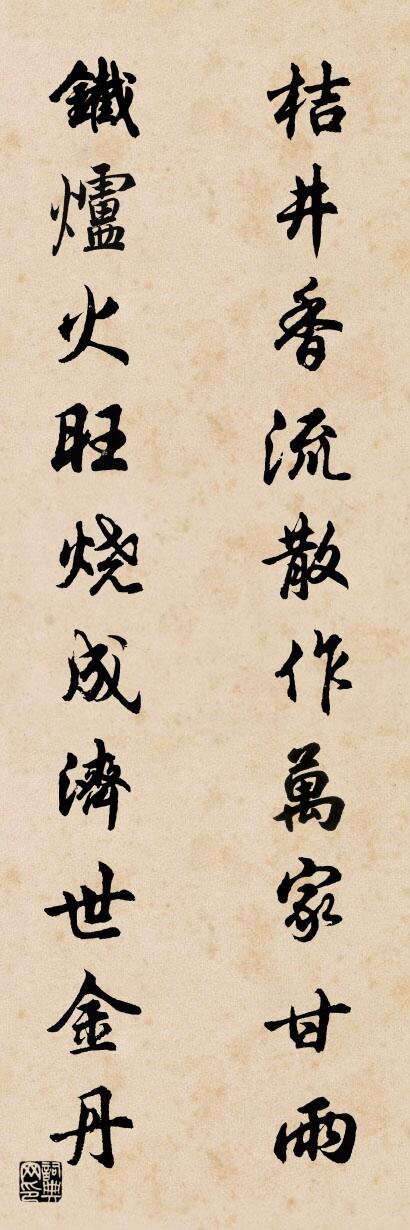 桔井香流散作萬家甘雨
鐵爐火旺燒成濟世金丹
詞典网印